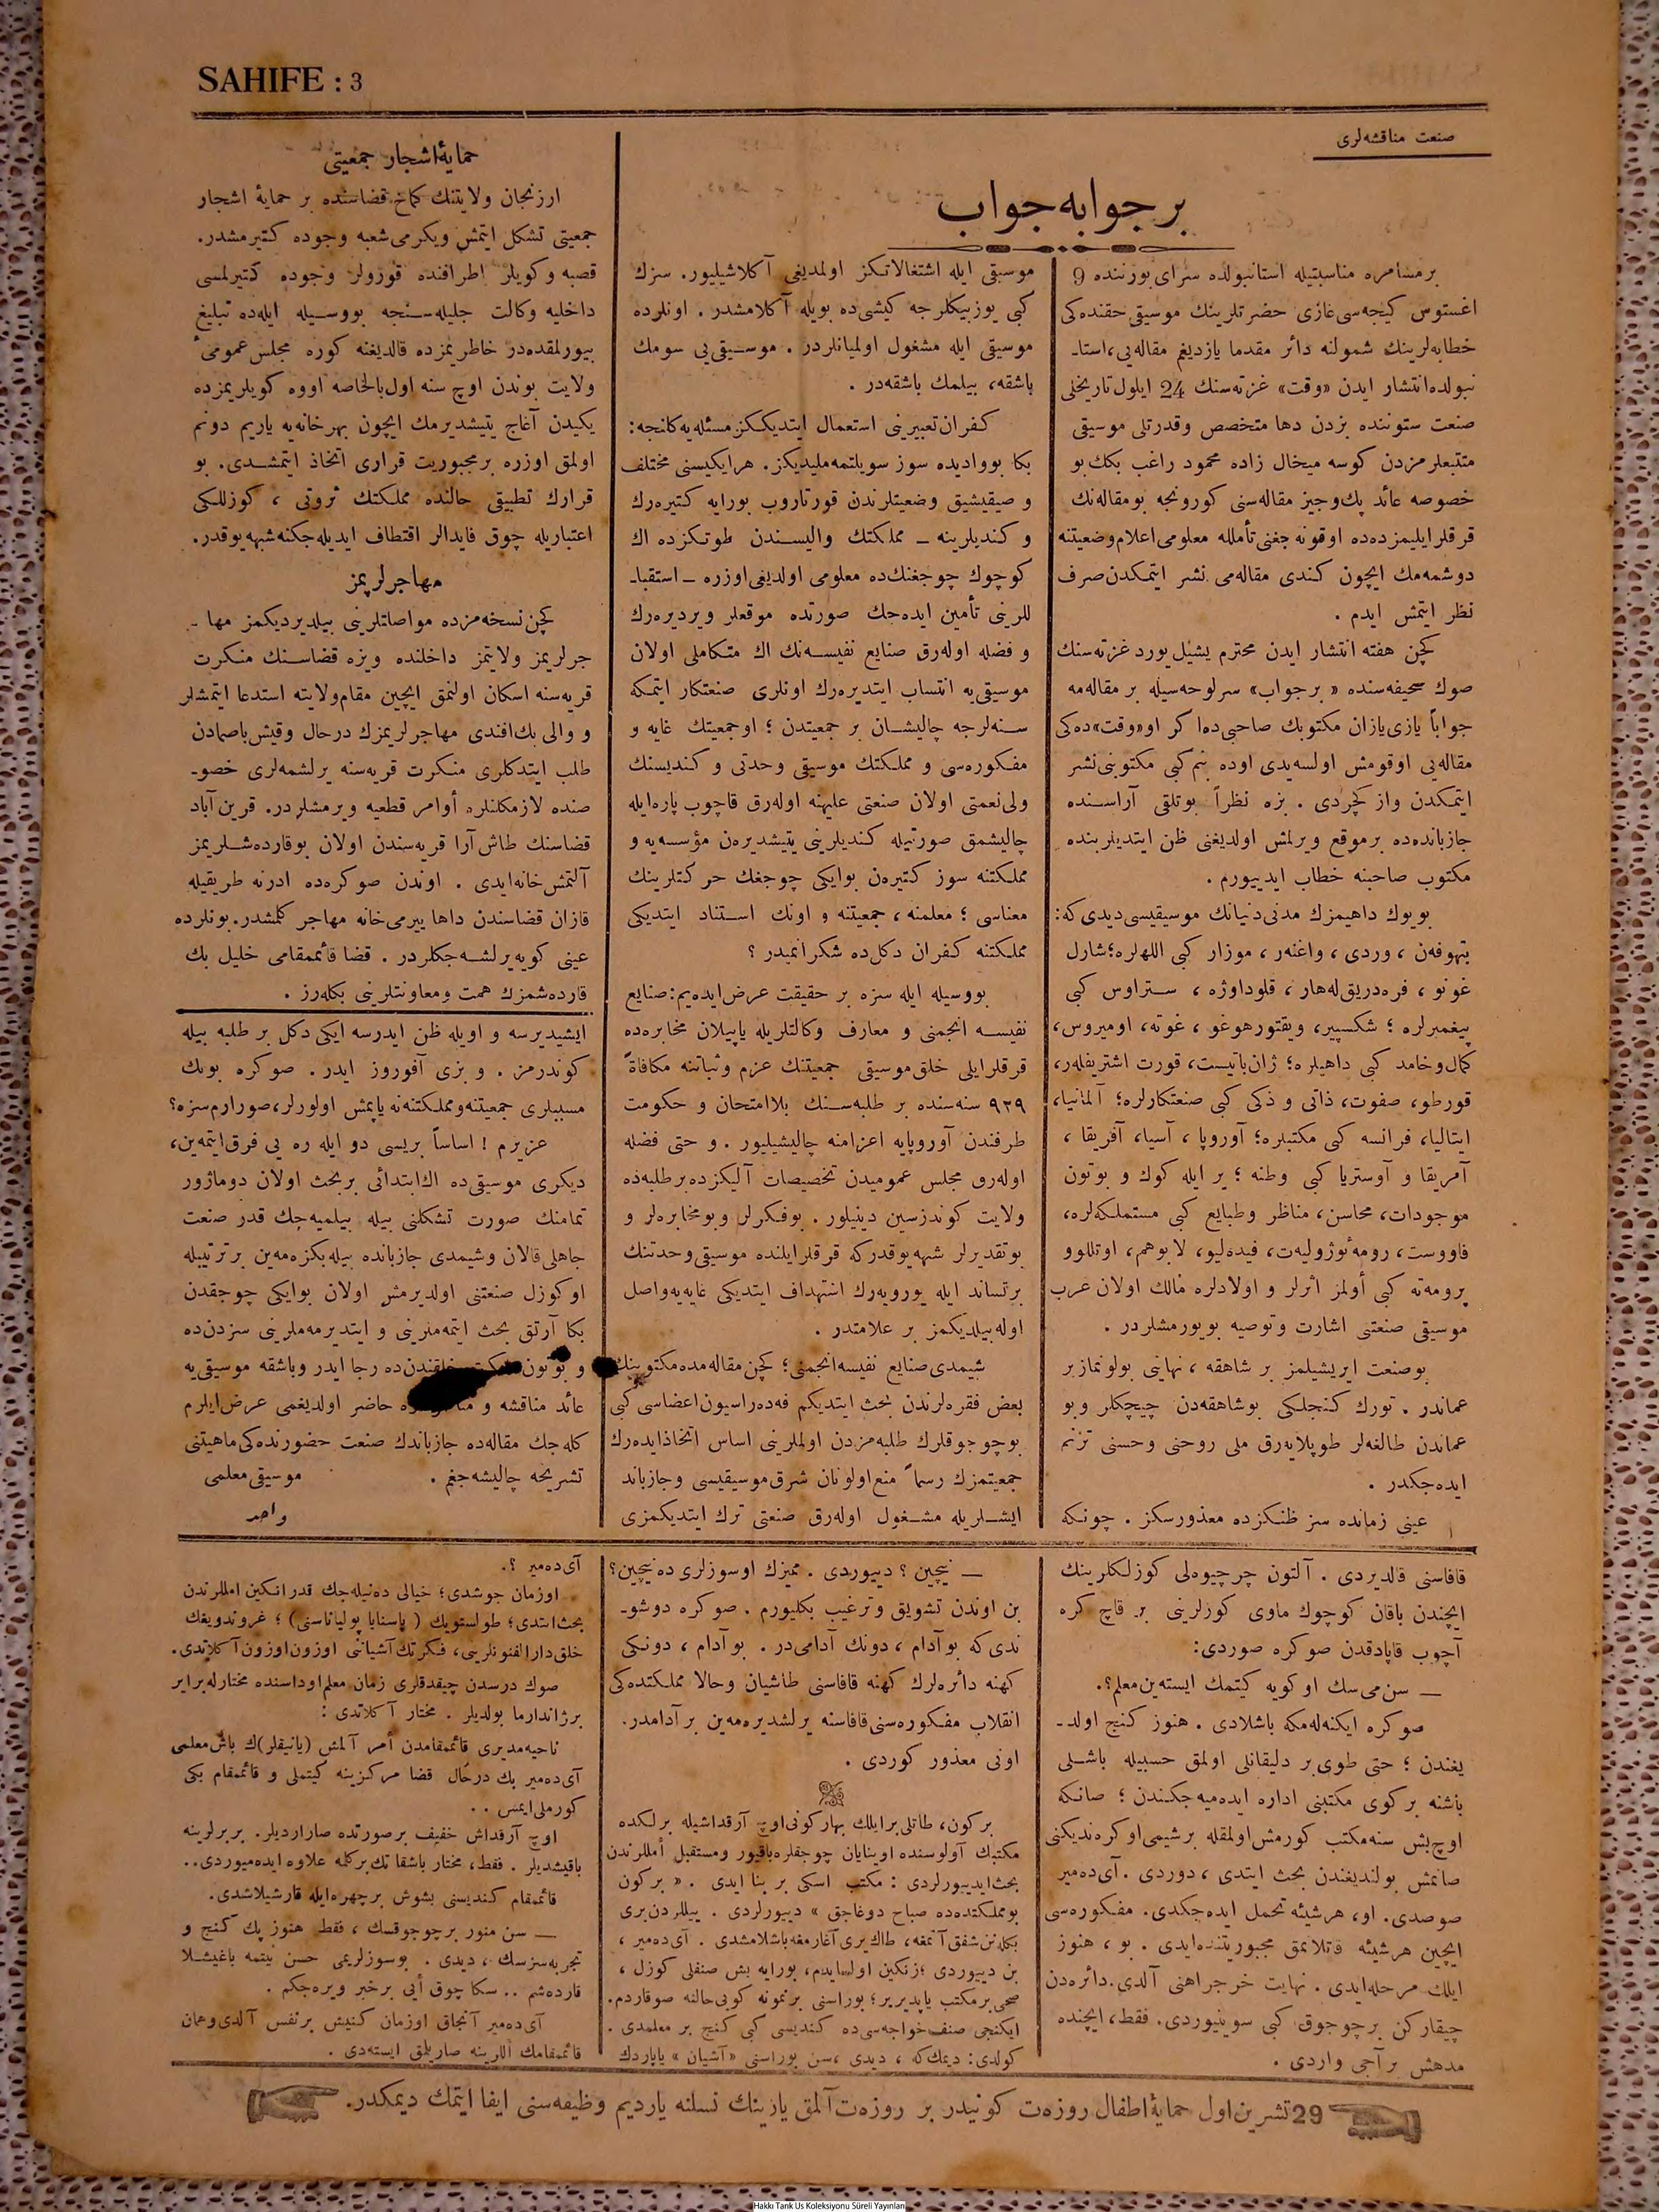 SAHIFE : 3
صنعت مناقشه‌لری
بر جوابه جواب
بر مسامره مناسبتیله استانبولده سرای بورننده 9
اغستوس کیجه‌سی غازی حضرتلرینك موسیقی حقنده‌کی
خطابه‌لرینك شمولنه دائر مقدما یازدیغم مقاله‌یی، استا-
نبولده انتشار ایدن «وقت» غزته‌سنك 24 ایلول تاریخلی
صنعت ستوننده بزدن دها متخصص وقدرتلی موسیقی
متتبعلرمزدن کوسه میخال زاده محمود راغب بکك بو
خصوصه عائد پك وجیز مقاله‌سنی کورونجه بو مقاله‌نك
قرقلرایلیمزده‌ده اوقونه جغنی تأمللە معلومی اعلام وضعیتنه
دوشمه‌مك ایچون کندی مقاله‌می نشر ایتمکدن صرف
نظر ایتمش ایدم .
کچن هفته انتشار ایدن محترم یشیل یورد غزته‌سنك
صوك صحیفه‌سنده « بر جواب» سرلوحه‌سیله بر مقاله‌مه
جواباً یازی یازان مکتوبك صاحبی‌ده اکر او «وقت»ده‌کی
مقاله‌یی اوقومش اولسه‌یدی اوده بنم کبی مکتوبنی نشر
ایتمکدن واز کچردی . بزه نظراً بوتلقی آراسنده
جازبانده‌ده بر موقع ویرلمش اولدیغنی ظن ایتدیلر بنده
مکتوب صاحبنه خطاب ایدییورم .
بویوك داهیمزك مدنی دنیانك موسیقیسی دیدی که:
بتهوفه‌ن ، وردی ، واغنه‌ر ، موزار کبی اللهلره؛ شارل
غونو ، فره‌دریق له‌هار ، قلوداوژه ، ستراوس کبی
پیغمبرلره ؛ شکسپیر، ویقتورهوغو ، غوته، اومیروس،
کمال وحامد کبی داهیلره؛ ژان باتیست، قورت اشتریفلەر،
قورطو، صفوت، ذاتی و ذکی کبی صنعتکارلره؛ آلمانیا،
ایتالیا، فرانسه کبی مکتبلره؛ آوروپا ، آسیا، آفریقا ،
آمریقا و آوستریا کبی وطنه ؛ یر ایله کوك و بوتون
موجودات، محاسن، مناظر وطبایع کبی مستملکه‌لره،
فاووست، رومه‌ئوژولیه‌ت، فیده‌لیو، لابوهم، اوتللوو
پرومه‌ته کبی أولمز اثرلر و اولادلره مالك اولان غرب
موسیقی صنعتی اشارت وتوصیه بویورمشلردر .
بو صنعت ایریشیلمز بر شاهقه ، نهایتی بولونماز بر
عماندر . تورك کنجلکی بو شاهقه‌دن چیچکلر وبو
عماندن طالغه‌لر طوپلایه‌رق ملی روحنی وحسنی ترنم
ایده‌جکدر .
عینی زمانده سز ظنکزده معذورسکز . چونکه
موسیقی ایله اشتغالاتکز اولمدیغی آکلاشیلیور. سزك
کبی یوزبیکلرجه کیشی‌ده بویله آکلامشدر . اونلرده
موسیقی ایله مشغول اولمیانلردر . موسیقی‌یی سومك
باشقه، بیلمك باشقه‌در .
کفران تعبیرینی استعمال ایتدیککز مسئله‌یه کلنجه:
بکا بووادیده سوز سویلتمه‌ملیدیکز. هر ایکیسنی مختلف
و صیقیشیق وضعیتلرندن قورتاروب بورایه کتیره‌رك
و کندیلرینه ــ مملکتك والیسندن طوتکزده اك
کوچوك چوجغنك‌ده معلومی اولدیغی اوزره ــ استقبا-
للرینی تأمین ایده‌جك صورتده موقعلر ویردیره‌رك
و فضله اوله‌رق صنایع نفیسه‌نك اك متکاملی اولان
موسیقی‌یه انتساب ایتدیره‌رك اونلری صنعتکار ایتمکه
سنه‌لرجه چالیشان بر جمعیتدن ؛ او جمعیتك غایه و
مفکوره‌سی و مملکتك موسیقی وحدتی و کندیسنك
ولی نعمتی اولان صنعتی علیهنه اوله‌رق قاچوب پاره ایله
چالیشمق صورتیله کندیلرینی یتیشدیره‌ن مؤسسه‌یه و
مملکتنه سوز کتیره‌ن بو ایکی چوجغك حرکتلرینك
معناسی ؛ معلمنه ، جمعیتنه و اونك استناد ایتدیکی
مملکتنه کفران دکل‌ده شکرانمیدر ؟
بووسیله ایله سزه بر حقیقت عرض ایده‌یم: صنایع
نفیسه انجمنی و معارف وکالتلریله یاپیلان مخابره‌ده
قرقلرایلی خلق موسیقی جمعیتنك عزم وثباتنه مکافاةً
٩٢٩ سنه‌سنده بر طلبه‌سنك بلا امتحان و حکومت
طرفندن آوروپایه اعزامنه چالیشیلیور . و حتی فضله
اوله‌رق مجلس عمومیدن تخصیصات آلیکزده بر طلبه‌ده
ولایت کوندرسین دینیلور . بوفکرلر وبومخابره‌لر و
بوتقدیرلر شبهه یوقدرکه قرقلرایلنده موسیقی وحدتنك
بر تساند ایله یورویه‌رك استهداف ایتدیکی غایه‌یه واصل
اوله بیلدیکمز بر علامتدر .
شیمدی صنایع نفیسه انجمنی؛ کچن مقاله‌مده مکتوبنك
بعض فقره‌لرندن بحث ایتدیکم فه‌ده‌راسیون اعضاسی کبی
بو چوجوقلرك طلبه‌مزدن اولملرینی اساس اتخاذ ایده‌رك
جمعیتمزك رسماً منع اولونان شرق موسیقیسی وجازباند
ایشلریله مشغول اوله‌رق صنعتی ترك ایتدیکمزی
حمایۀ اشجار جمعیتی
ارزنجان ولایتنك کماخ قضاسنده بر حمایۀ اشجار
جمعیتی تشکل ایتمش ویکرمی شعبه وجوده کتیرمشدر.
قصبه وکویلر اطرافنده قوزولر وجوده کتیرلمسی
داخلیه وکالت جلیله‌سنجه بووسیله ایله‌ده تبلیغ
بیورلمقده‌در خاطریمزده قالدیغنه کوره مجلس عمومیٔ
ولایت بوندن اوچ سنه اول بالخاصه اووه کویلریمزده
یکیدن آغاج یتیشدیرمك ایچون بهرخانه‌یه یاریم دونم
اولمق اوزره بر مجبوریت قراری اتخاذ ایتمشدی. بو
قرارك تطبیقی حالنده مملکتك ثروتی ، کوزللکی
اعتباریله چوق فایدالر اقتطاف ایدیله‌جکنه شبهه یوقدر.
مهاجرلریمز
کچن نسخه‌مزده مواصلتلرینی بیلدیردیکمز مها -
جرلریمز ولایتمز داخلنده ویزه قضاسنك منکرت
قریه‌سنه اسکان اولنمق ایچین مقام ولایته استدعا ایتمشلر
و والی بك افندی مهاجرلریمزك درحال وقیش باصمادن
طلب ایتدکلری منکرت قریه‌سنه یرلشمه‌لری خصو-
صنده لازمکلنلره أوامر قطعیه ویرمشلردر. قرین آباد
قضاسنك طاش آرا قریه‌سندن اولان بو قارده‌شلریمز
آلتمش خانه ایدی . اوندن صوکره‌ده ادرنه طریقیله
قازان قضاسندن داها ییرمی خانه مهاجر کلمشدر. بونلرده
عینی کویه یرلشه‌جکلردر . قضا قائممقامی خلیل بك
قارده‌شمزك همت ومعاونتلرینی بکله‌رز .
ایشیدیرسه و اویله ظن ایدرسه ایکی دکل بر طلبه بیله
کوندرمز . و بزی آفوروز ایدر. صوکره بونك
مسببلری جمعیتنه ومملکتنه نه یاپمش اولورلر، صورارم سزه؟
عزیزم ! اساساً بریسی دو ایله ره یی فرق ایتمه‌ین،
دیکری موسیقی‌ده اك ابتدائی بر بحث اولان دوماژور
تمامنك صورت تشکلنی بیله بیلمیه‌جك قدر صنعت
جاهلی قالان وشیمدی جازبانده بیله بکزه‌مه‌ین بر ترتیبله
او کوزل صنعتنی اولدیرمش اولان بو ایکی چوجقدن
بکا آرتق بحث ایتمه‌ملرینی و ایتدیرمه‌ملرینی سزدن‌ده
و بوتون خلقندن‌ده رجا ایدر وباشقه موسیقی‌یه
عائد مناقشه و حاضر اولدیغمی عرض ایلرم
کله‌جك مقاله‌ده جازباندك صنعت حضورنده‌کی ماهیتنی
تشریحه چالیشه‌جغم . موسیقی معلمی
واحد
قافاسنی قالدیردی . آلتون چرچیوه‌لی کوزلکلرینك
ایچندن باقان کوچوك ماوی کوزلرینی بر قاچ کره
آچوب قاپادقدن صوکره صوردی:
— سن می‌سك او کویه کیتمك ایسته‌ین معلم؟.
صوکره ایکنه‌له‌مکه باشلادی . هنوز کنج اولد-
یغندن ؛ حتی طوی بر دلیقانلی اولمق حسبیله باشلی
باشنه بر کوی مکتبنی اداره ایده‌میه‌جکندن ؛ صانکه
اوچ بش سنه مکتب کورمش اولمقله بر شیمی اوکره‌ندیکنی
صانمش بولندیغندن بحث ایتدی ، دوردی . آی‌ده‌میر
صوصدی. او، هرشیئه تحمل ایده‌جکدی. مفکوره‌سی
ایچین هرشیئه قاتلانمق مجبوریتنده‌ایدی . بو ، هنوز
ایلك مرحله ایدی . نهایت خرجراهنی آلدی. دائره‌دن
چیقارکن بر چوجوق کبی سوینیوردی. فقط، ایچنده
مدهش بر آجی واردی .
— نیچین ؟ دییوردی . ممیزك او سوزلری ده نیچین؟
بن اوندن تشویق وترغیب بکلیورم . صوکره دوشو-
ندی که بو آدام ، دونك آدامی‌در . بو آدام ، دونکی
کهنه دائره‌لرك کهنه قافاسنی طاشیان وحالا مملکتده‌کی
انقلاب مفکوره‌سنی قافاسنه یرلشدیره‌مه‌ین بر آدامدر.
اونی معذور کوردی .
بر کون، طاتلی بر ایلك بهار کونی اوچ آرقداشیله برلکده
مکتبك آولوسنده اوینایان چوجقلره باقیور ومستقبل أمللرندن
بحث ایدیورلردی : مکتب اسکی بر بنا ایدی . « بر کون
بو مملکتده‌ده صباح دوغاجق » دییورلردی . ییللردن‌بری
بکله‌نن شفق آتمغه، طاك یری آغارمغه باشلامشدی . آی‌ده‌میر ،
بن دییوردی ؛ زنکین اولسایدم، بورایه بش صنفلی کوزل ،
صحی بر مکتب یاپدیریر؛ بوراسنی بر نمونه کویی حالنه صوقاردم.
ایکنجی صنف خواجه‌سی‌ده کندیسی کبی کنج بر معلمدی .
کولدی: دیمك‌که ، دیدی ، سن بوراسنی «آشیان» یاپاردك
آی‌ده‌میر ؟.
اوزمان جوشدی؛ خیالی ده‌نیله‌جك قدر انکین امللرندن
بحث ایتدی؛ طولستویك ( یاسنایا پولیاناسی) ؛ غروندویغك
خلق دارالفنونلرینی، فکرتك آشیاننی اوزون اوزون آکلاتدی.
صوك درسدن چیقدقلری زمان معلم اوداسنده مختارله برابر
بر ژاندارما بولدیلر . مختار آکلاتدی :
ناحیه مدیری قائممقامدن أمر آلمش (یانیقلر)ك باش معلمی
آی‌ده‌میر بك درحال قضا مرکزینه کیتملی و قائممقام بکی
کورملی ایمش ..
اوچ آرقداش خفیف بر صورتده صارار دیلر. بر برلرینه
باقیشدیلر . فقط، مختار باشقا تك بر کلمه علاوه ایده‌میوردی..
قائممقام کندیسنی بشوش بر چهره ایله قارشیلاشدی.
— سن منور بر چوجوقسك ، فقط هنوز پك کنج و
تجربه‌سزسك ، دیدی . بو سوزلریمی حسن نیتمه باغیشلا
قارده‌شم .. سکا چوق أیی بر خبر ویره‌جکم .
آی‌ده‌میر آنجاق اوزمان کنیش بر نفس آلدی وهمان
قائممقامك اللرینه صاریلمق ایسته‌دی .
29 تشرین اول حمایۀ اطفال روزه‌ت کونیدر بر روزه‌ت آلمق یازینك نسلنه یاردیم وظیفه‌سنی ایفا ایتمك دیمکدر.
Hakkı Tarık Us Koleksiyonu Süreli Yayınları